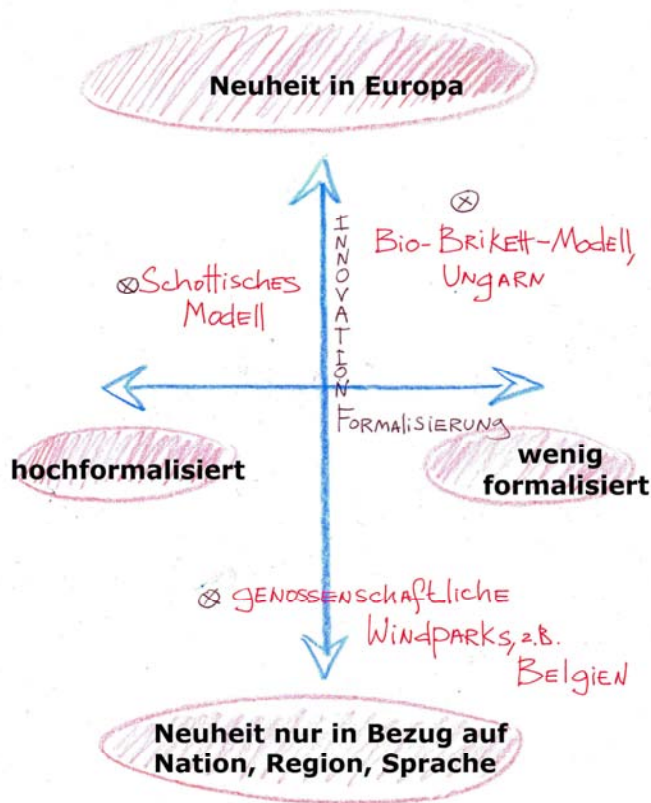 Neuheit in Europa
INNOVATION
Bio-Brikett-Modell,
Ungarn
Schottisches
Modell
Formalisierung
hochformalisiert
wenig
formalisiert
genossenschaftliche
Windparks, z.B.
Belgien
Neuheit nur in Bezug auf
Nation, Region, Sprache